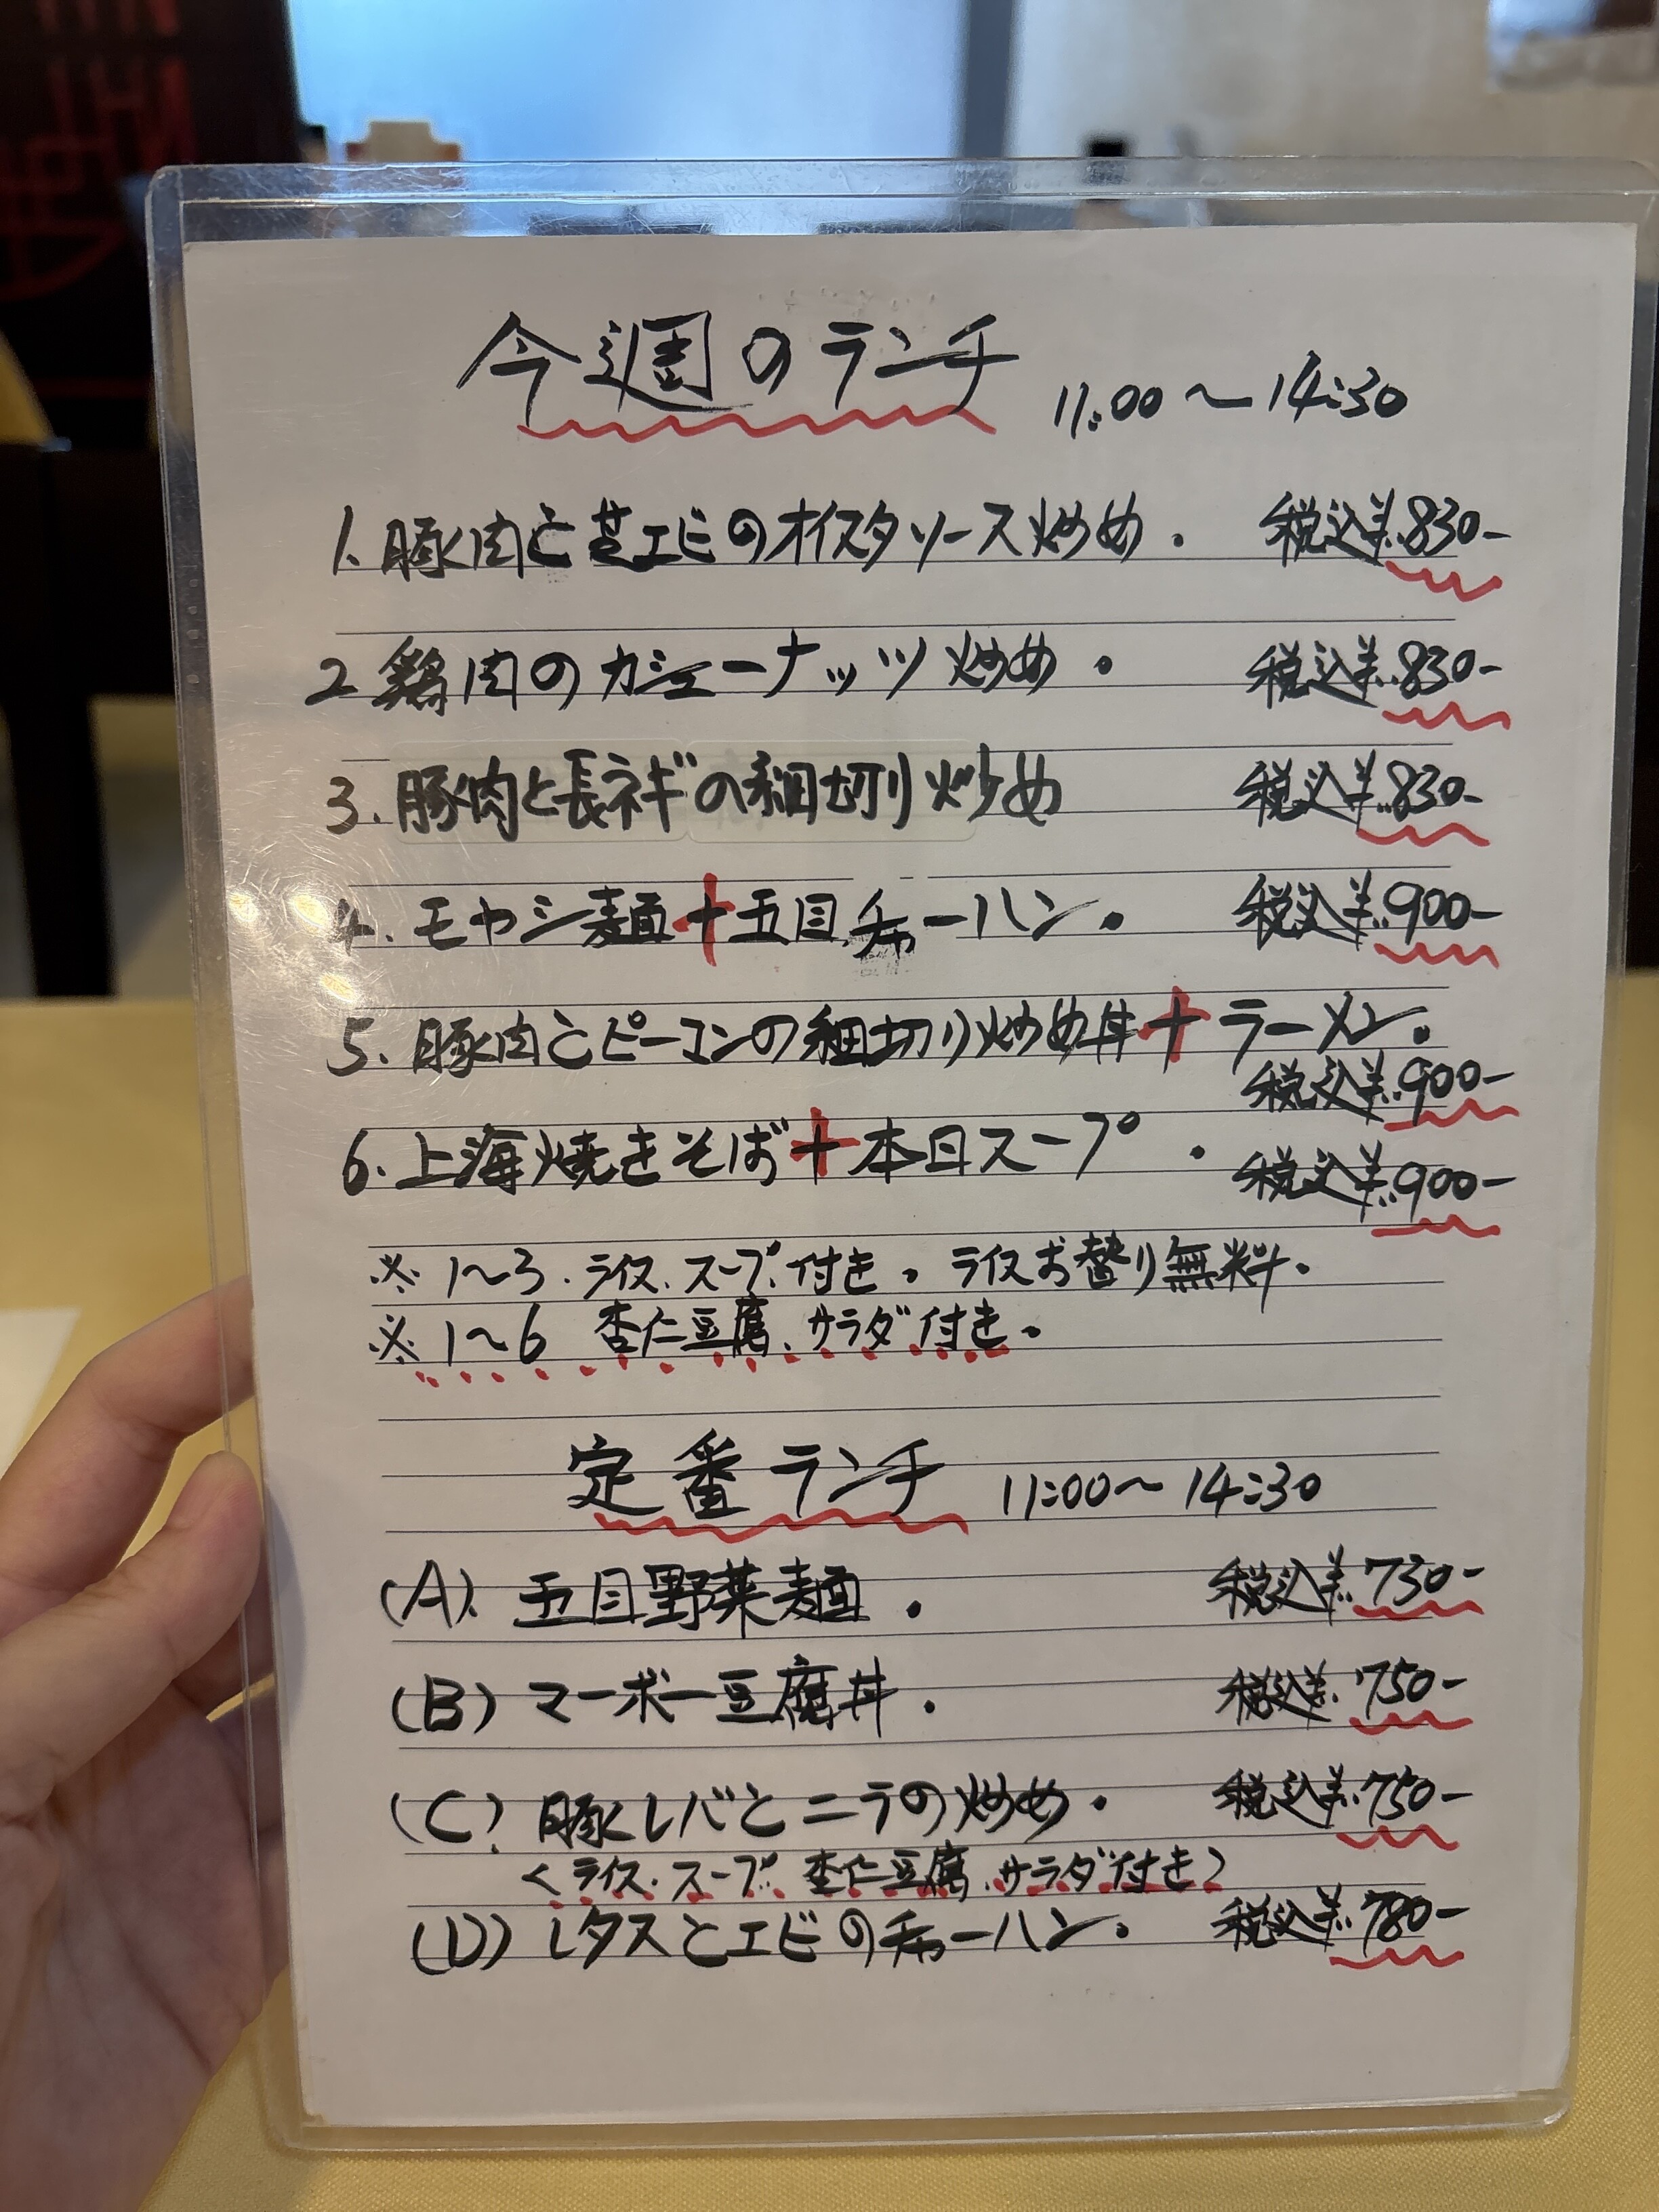 今週のランチ 11:00〜14:30
1. 豚肉と芝エビのオイスタソース炒め. 税込¥830-
2 鶏肉のカシューナッツ炒め. 税込¥830-
3. 豚肉と長ネギの細切り炒め 税込¥830-
4. モヤシ麺+五目チャーハン. 税込¥900-
5. 豚肉とピーマンの細切り炒め丼+ラーメン.
税込¥900-
6. 上海焼きそば+本日スープ. 税込¥900-
※ 1〜3. ライス.スープ.付き. ライスお替り無料.
※ 1〜6 杏仁豆腐、サラダ付き.
定番ランチ 11:00〜14:30
(A). 五目野菜麺. 税込¥730-
(B) マーボー豆腐丼. 税込¥750-
(C) 豚レバとニラの炒め. 税込¥750-
<ライス.スープ.杏仁豆腐.サラダ付き>
(D) レタスとエビのチャーハン. 税込¥780-